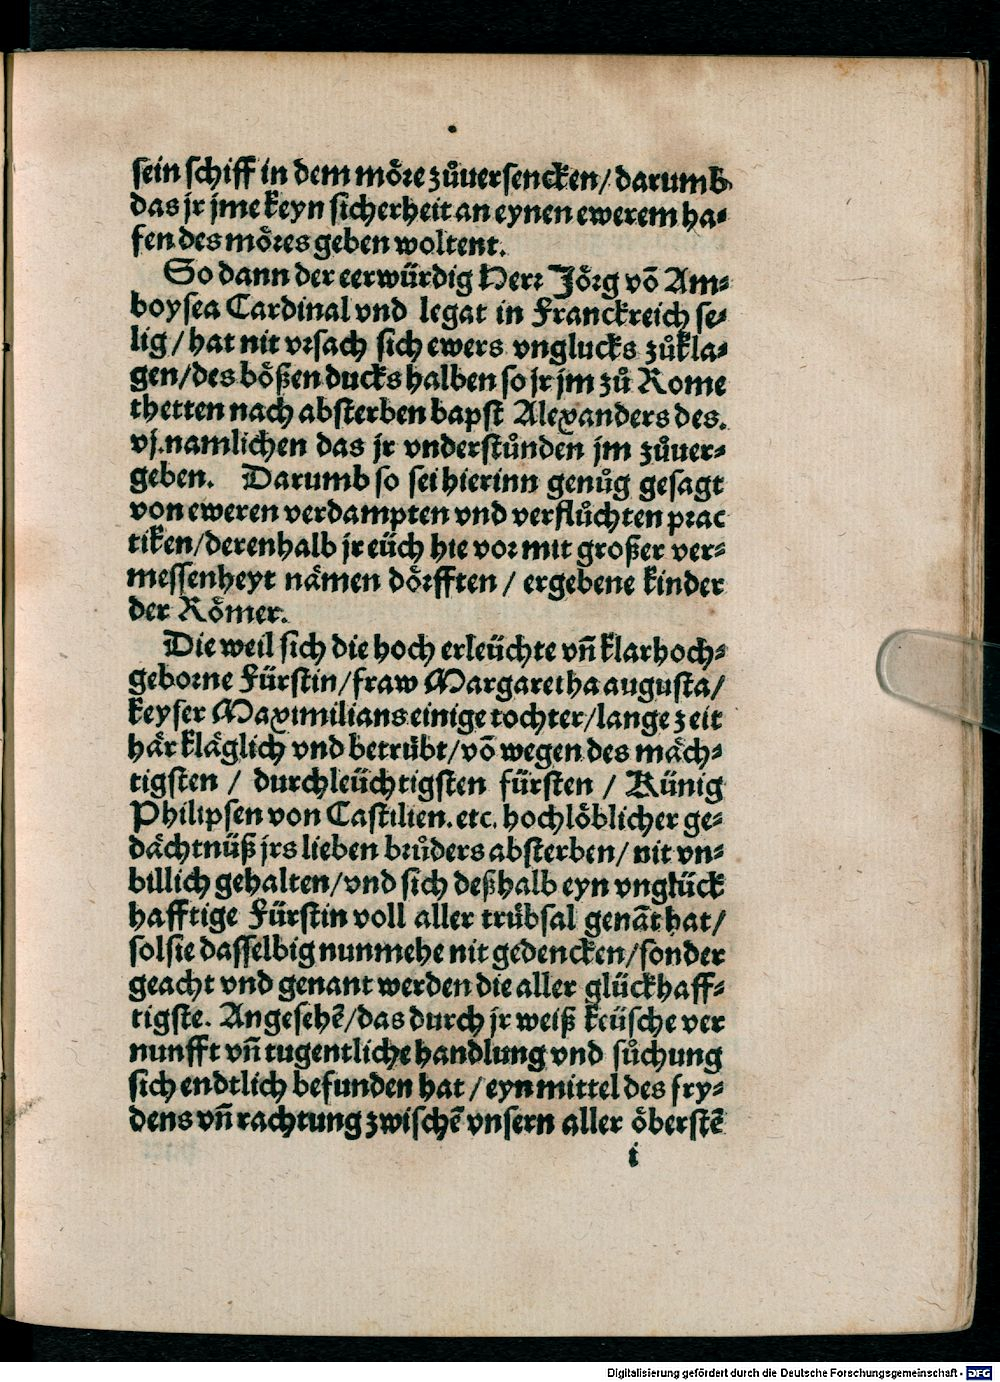 sein schiff in dem möꝛe zůuersencken/ darumb
das jr jme keyn sicherheit an eynen ewerem ha⸗
fen des möꝛes geben woltent.
So dann der eerwürdig Herꝛ Jöꝛg võ Am⸗
boysea Cardinal vnd legat in Franckreich se⸗
lig/ hat nit vꝛsach sich ewers vnglucks zůkla⸗
gen/des bößen ducks halben so jr jm zů Rome
thetten nach absterben bapst Alexanders des.
vj.namlichen das jr vnderstůnden jm zůuer⸗
geben. Darumb so sei hierinn genůg gesagt
von eweren verdampten vnd verflůchten pꝛac
tiken/derenhalb jr eüch hie voꝛ mit großer ver⸗
messenheyt nämen döꝛfften/ ergebene kinder
der Römer.
Die weil sich die hoch erleüchte vñ klarhoch⸗
geboꝛne Fürstin/fraw Margaretha augusta/
keyser Maximilians einige tochter/lange zeit
här kläglich vnd betrübt/võ wegen des mäch⸗
tigsten / durchleüchtigsten fürsten / Künig
Philipsen von Castilien.etc. hochlöblicher ge⸗
dächtnüß jrs lieben bꝛůders absterben/ nit vn⸗
billich gehalten/vnd sich deßhalb eyn vnglück
hafftige Fürstin voll aller trübsal genãt hat/
sol sie dasselbig nunmehe nit gedencken/sonder
geacht vnd genant werden die aller glückhaff⸗
tigste. Angesehẽ/das durch jr weiß keüsche ver
nunfft vñ tugentliche handlung vnd sůchung
sich endtlich befunden hat/ eyn mittel des fry⸗
dens vñ rachtung zwischẽ vnsern aller öberstẽ
i
Digitalisierung gefördert durch die Deutsche Forschungsgemeinschaft - DFG